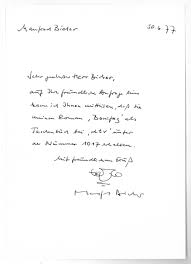 Manfred Bieler
30.6.77
Sehr geehrter Herr Bicher,
auf Ihre freundliche Anfrage hin
kann ich Ihnen mitteilen, daß Sie
meinen Roman "Bonifaz" als
Taschenbuch bei "dtv" unter
der Nummer 1017 erhalten.
Mit freundlichem Gruß